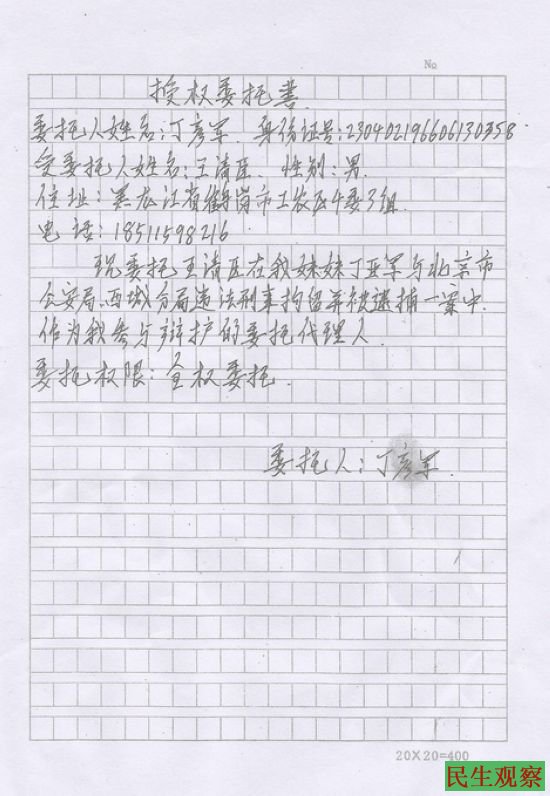 No
授权委托书
委托人姓名:丁彦军. 身份证号:230402196606130358
受委托人姓名:王清臣. 性别:男.
住址:黑龙江省鹤岗市工农区4委3组.
电话:18511598216
现委托王清臣在我妹妹丁亚军与北京市
公安局.西城分局违法刑事拘留并被逮捕一案中.
作为我参与辩护的委托代理人.
委托权限:全权委托.
委托人:丁彦军.
20×20=400
民生观察